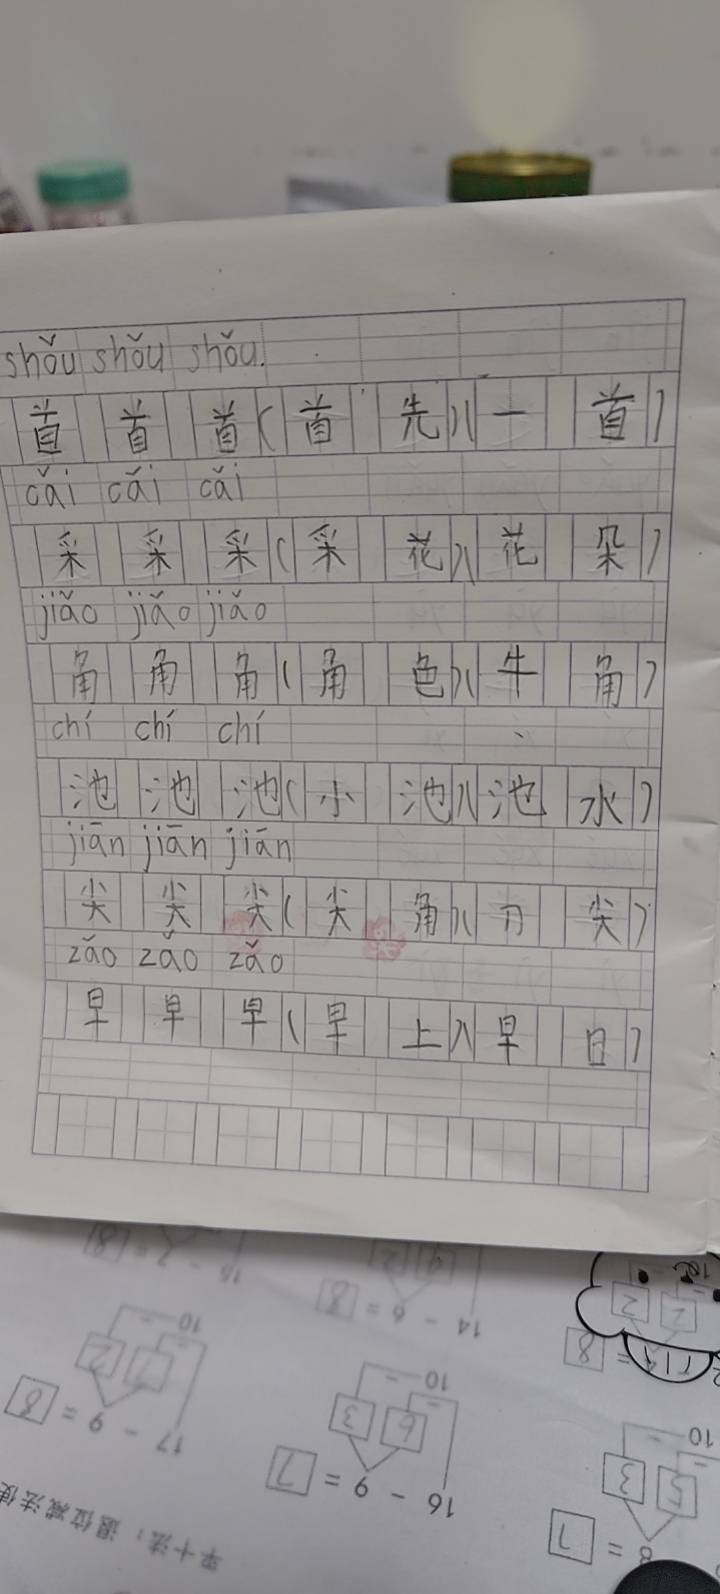 shǒu shǒu shǒu.
首 首 首 ( 首 先 ) ( 一 首 )
cǎi cǎi cǎi
采 采 采 ( 采 花 ) ( 花 朵 )
jiǎo jiǎo jiǎo
角 角 角 ( 角 色 ) ( 牛 角 )
chí chí chí
池 池 池 ( 小 池 ) ( 池 水 )
jiān jiān jiān
尖 尖 尖 ( 尖 角 ) ( 刀 尖 )
zǎo zǎo zǎo
早 早 早 ( 早 上 ) ( 早 日 )
平十法：退位减法使
16 - 9 = 7
10
6 3
17 - 9 = 8
10
7 2
14 - 6 = 8
10
5 3